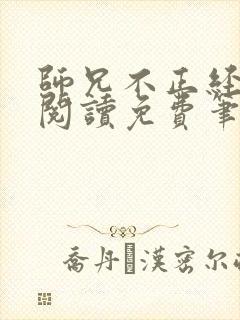 師兄不正經
閱讀免費筆
喬丹·漢密尔